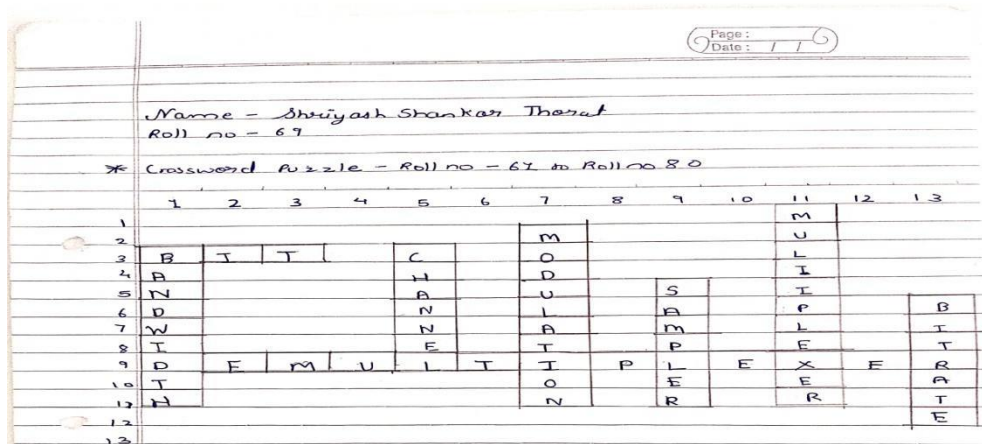 Page :
Date : / /
Name - Shriyash Shankar Thorat
Roll no - 69
* Crossword Puzzle - Roll no - 61 to Roll no 80
1 2 3 4 5 6 7 8 9 10 11 12 13
1 M
2 M U
3 B I T C O L
4 A H D I
5 N A U S I
6 D N L A P B
7 W N A M L I
8 I E T P E T
9 D E M U L T I P L E X E R
10 T O E E A
12 H N R R T
12 E
13